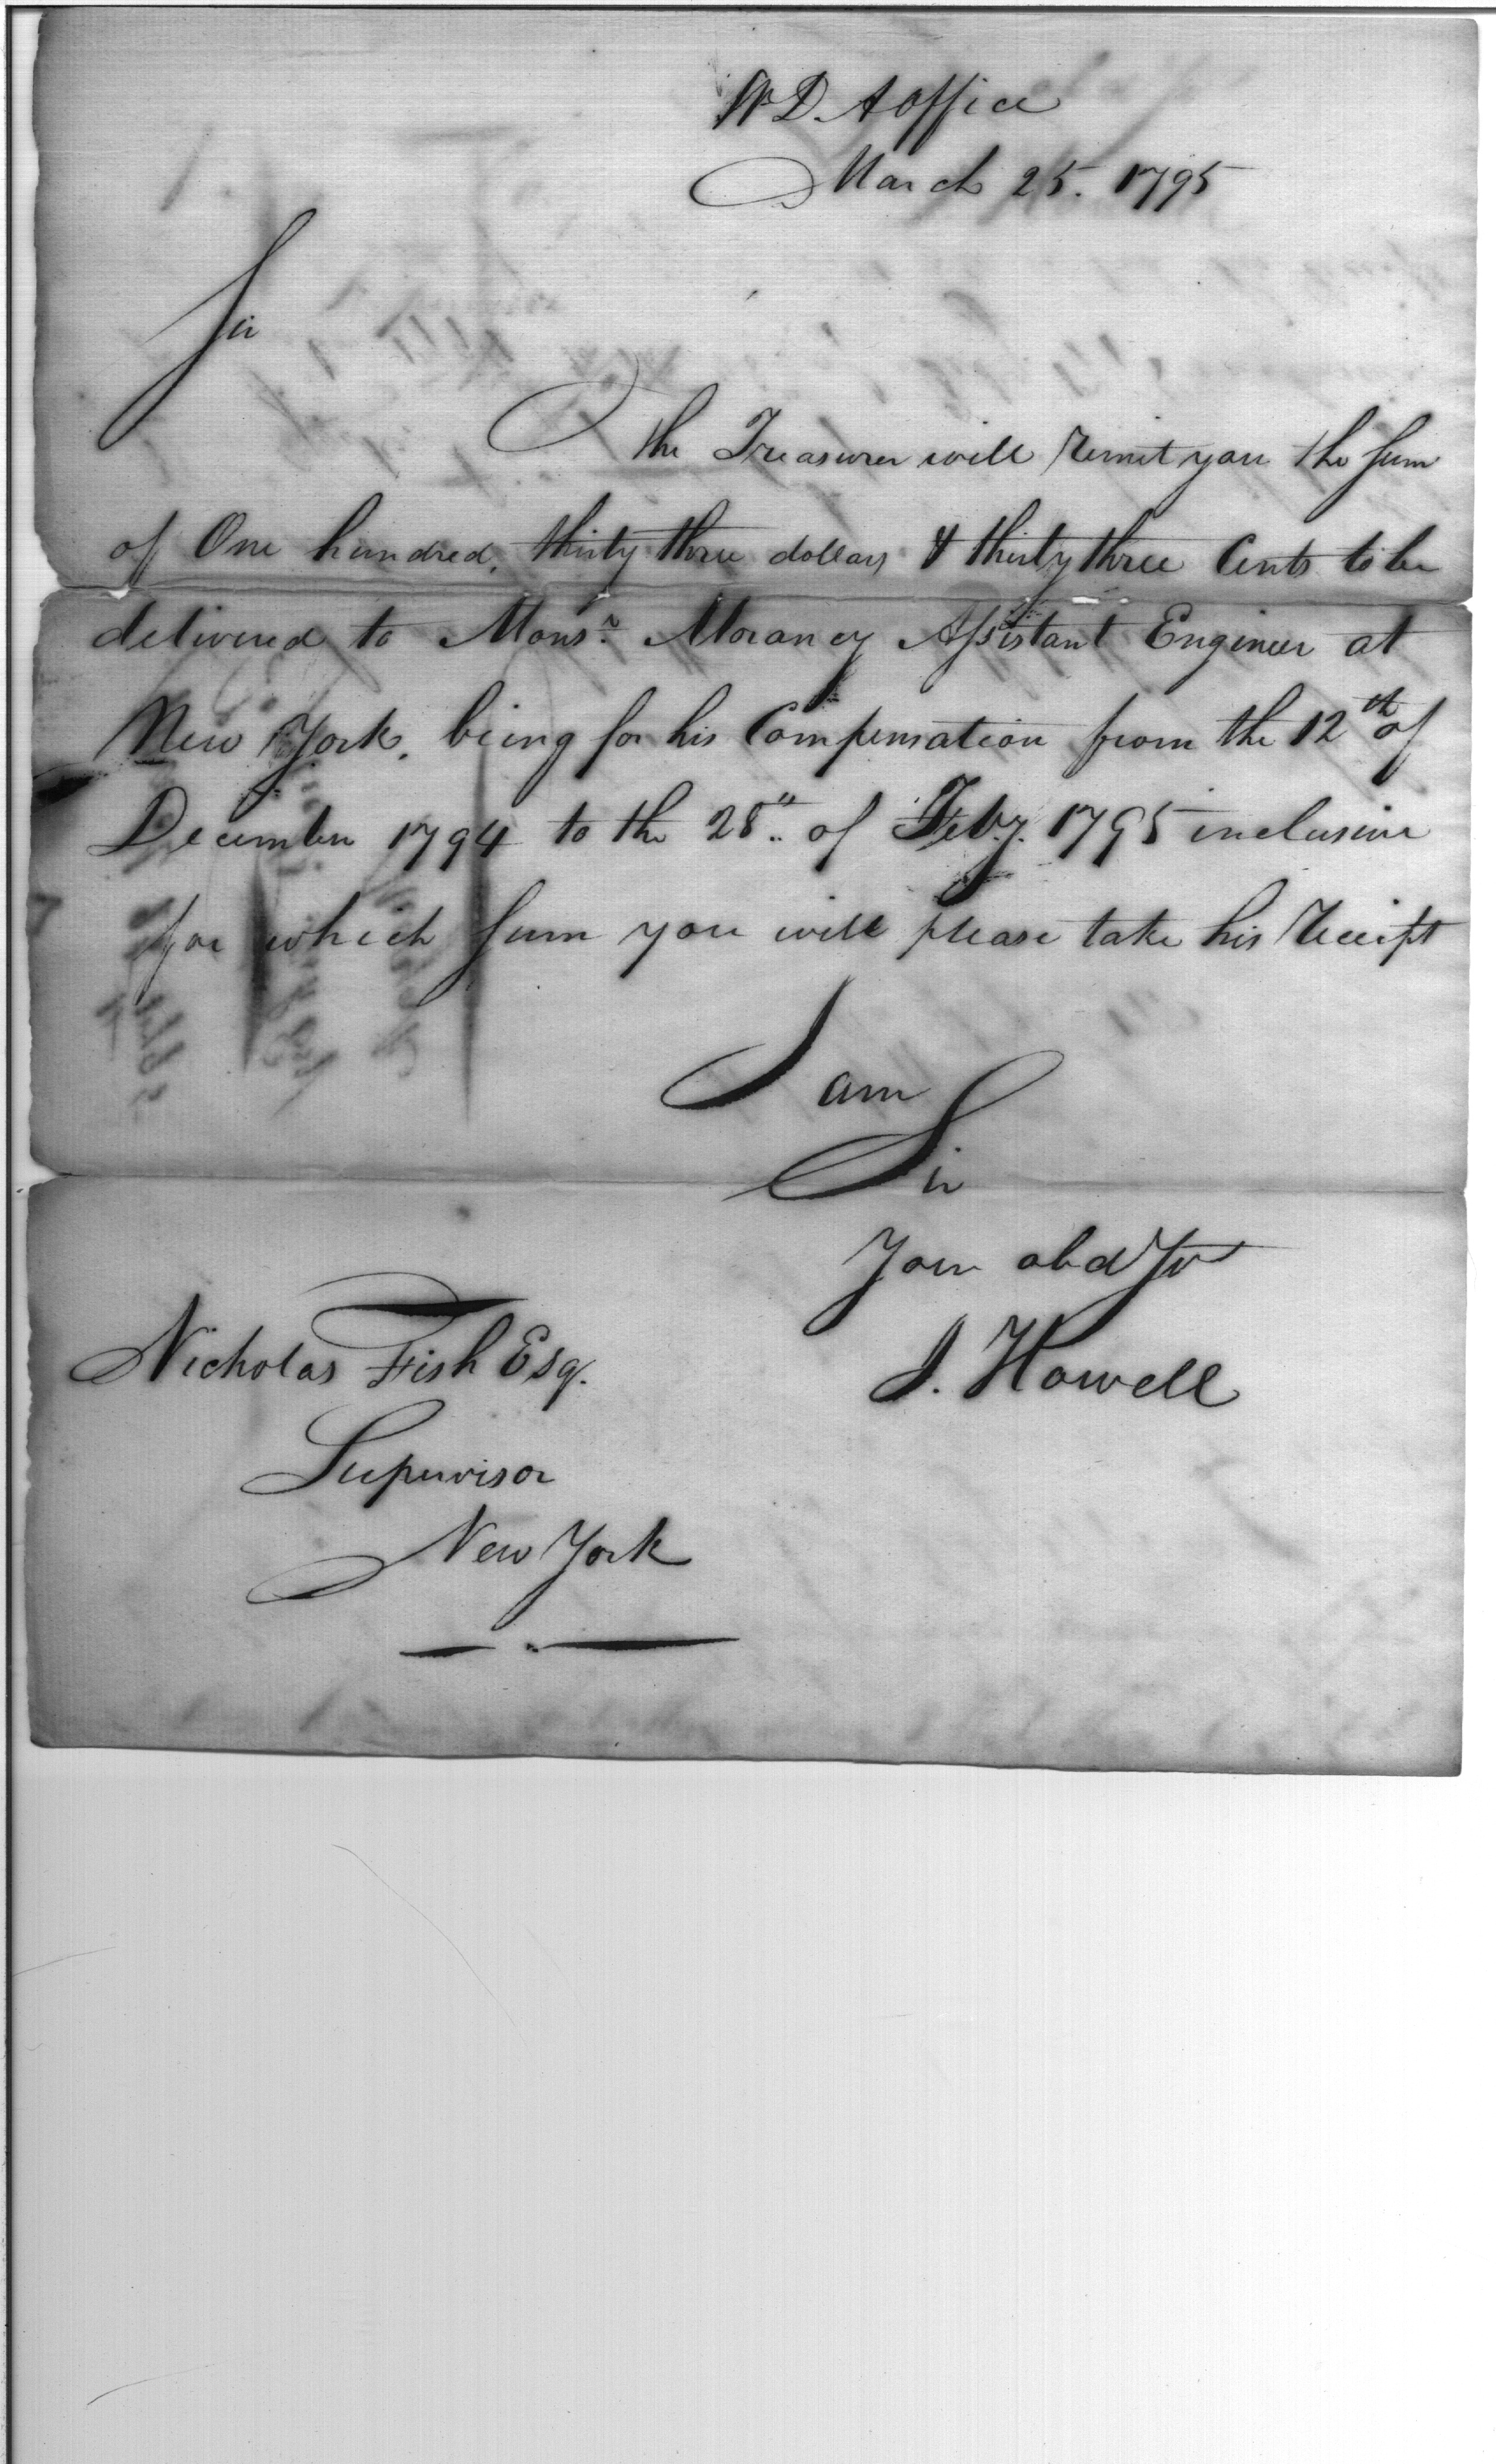 W D. A Office
March 25. 1795
Sir
The Treasurer will remit you the sum
of One hundred, thirty three dollars & thirty three Cents to be
delivered to Monsr. Morancy Assistant Engineer at
New York, being for his Compensation from the 12th of
December 1794 to the 28th. of Feby. 1795 inclusive
for which sum you will please take his receipt
I am
Sir
Your obd Sv
J. Howell
Nicholas Fish Esq.
Supervisor
New York